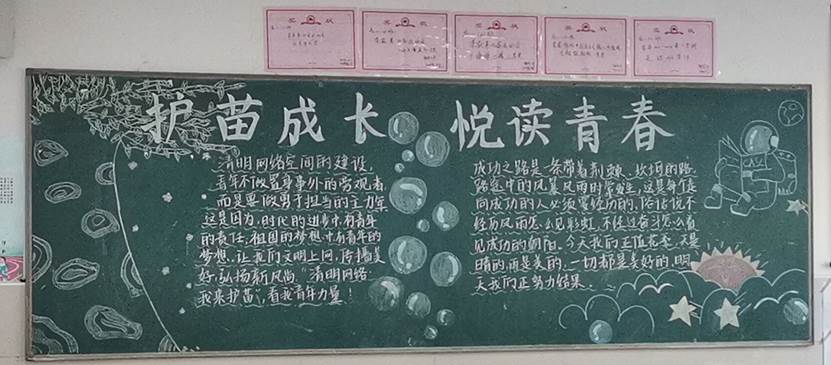 奖状
奖状
奖状
奖状
奖状
护苗成长 悦读青春
清明网络空间的建设,
青年不做置身事外的旁观者,
而是要做勇于担当的主力军.
这是因为,时代的进步中,有青年
的责任,祖国的梦想中,有青年的
梦想,让我们文明上网,传播美
好,弘扬新风尚“清明网络
我来护苗”,看我青年力量!
成功之路是一条带着荆棘、坎坷的路
路途中的风暴风雨时常发生,这是每个走
向成功的人必须要经历的,俗话说不
经历风雨怎么见彩虹,不经过奋斗怎么看
见成功的朝阳,今天我们正值花季,天是
晴的,雨是美的,一切都是美好的,明
天我们正努力结果.